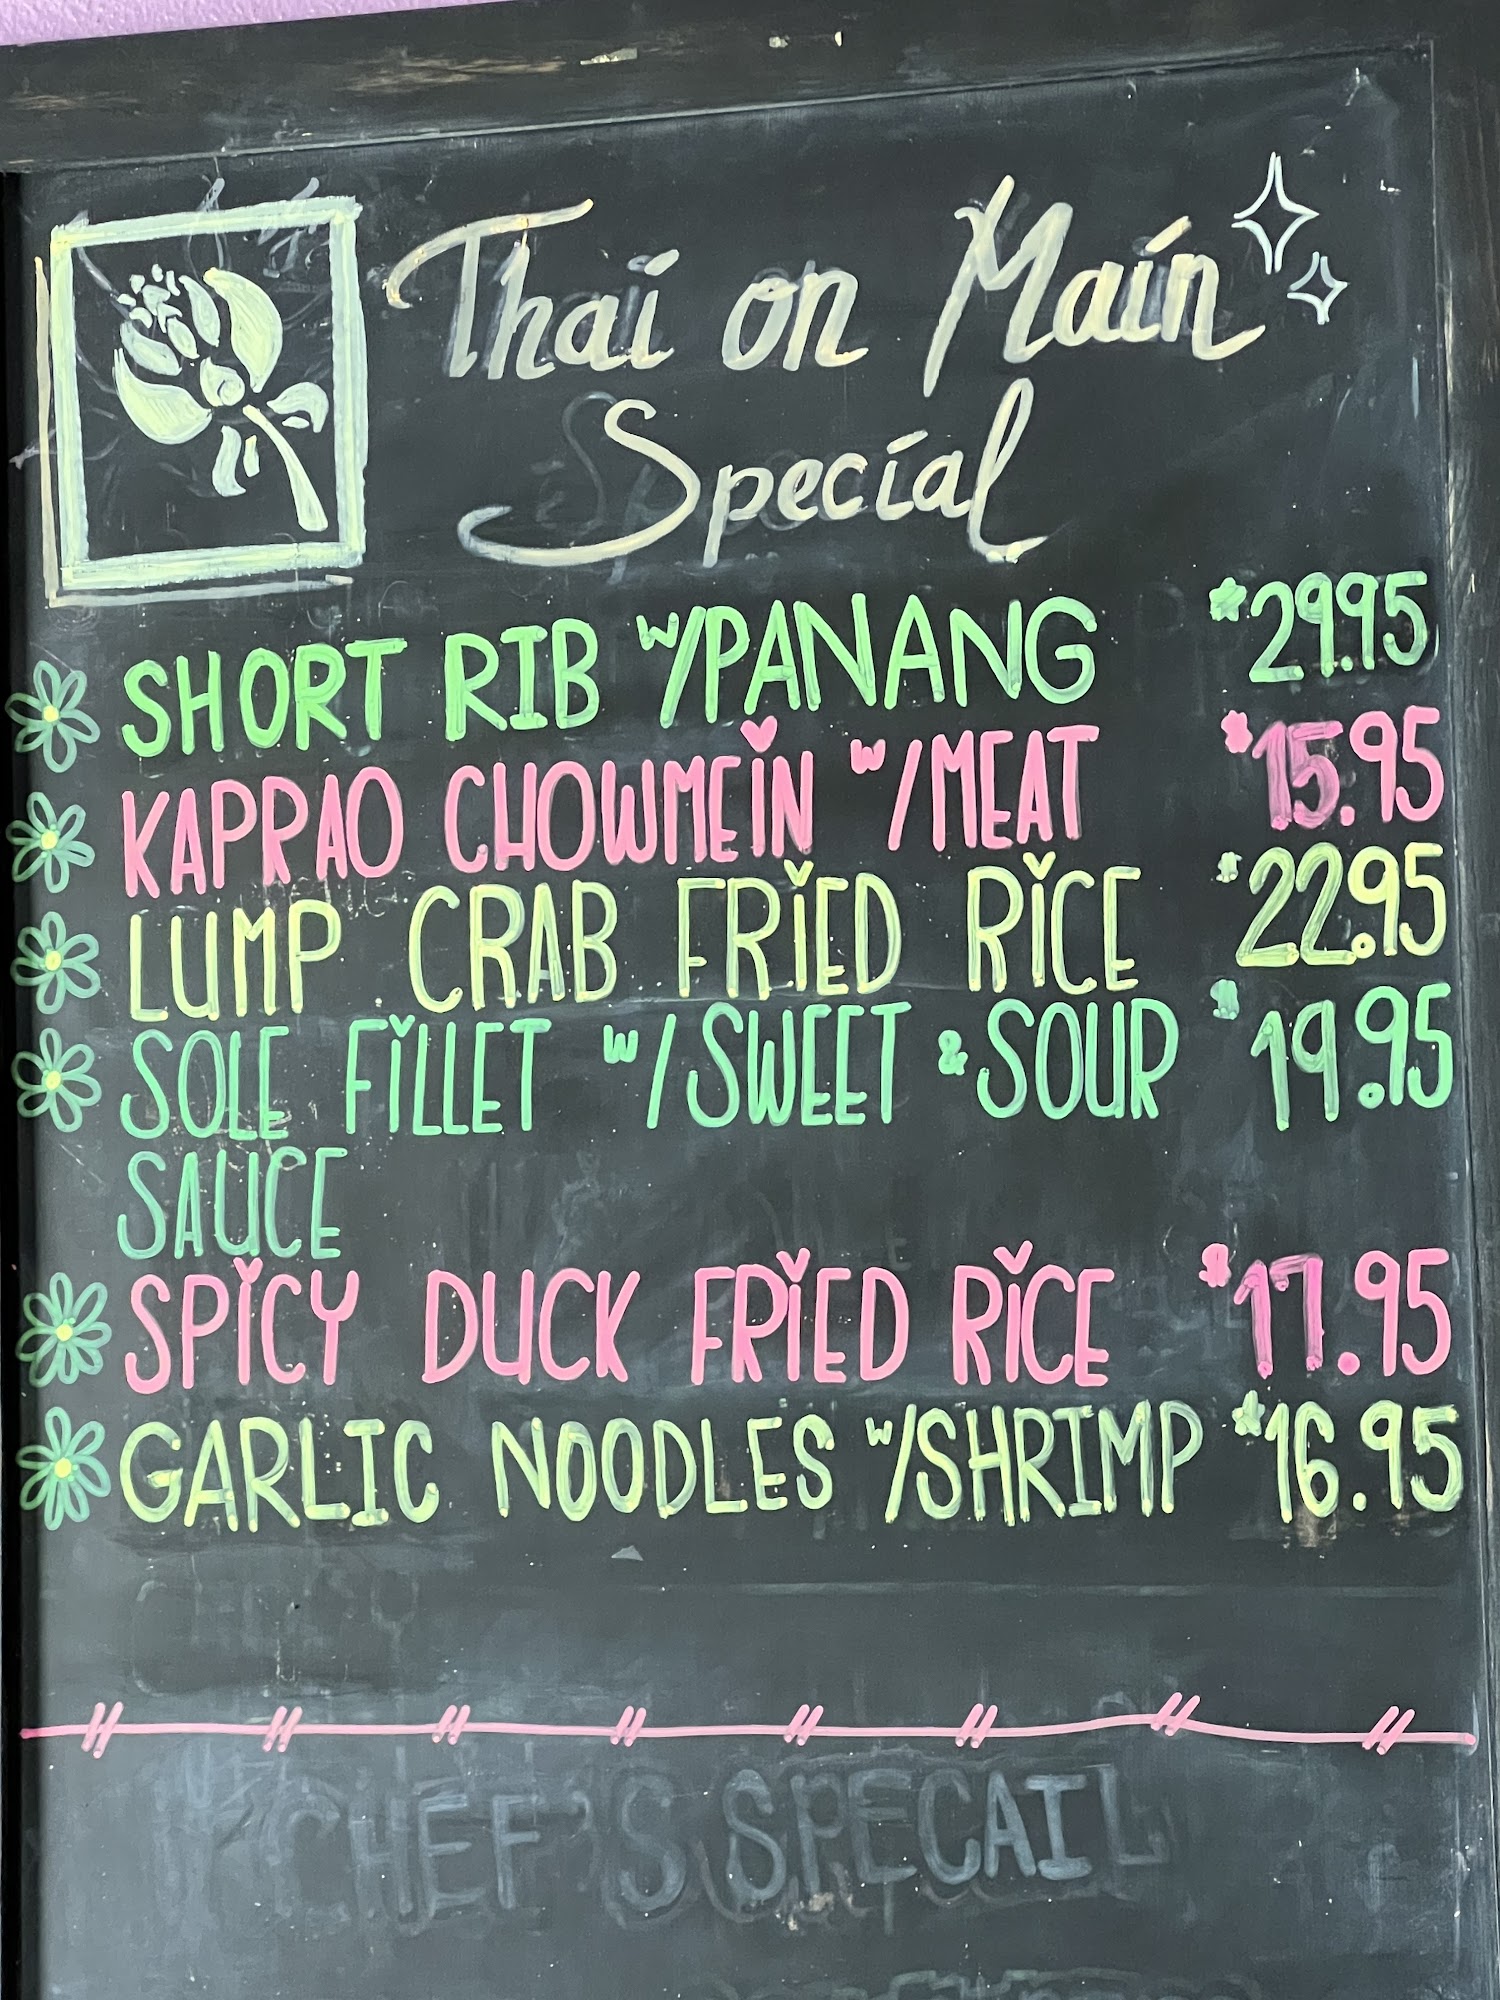 Thai on Main
Special
SHORT RIB W/PANANG $29.95
KAPRAO CHOWMEIN W/MEAT $15.95
LUMP CRAB FRIED RICE $22.95
SOLE FILLET W/SWEET & SOUR $19.95
SAUCE
SPICY DUCK FRIED RICE $17.95
GARLIC NOODLES W/SHRIMP $16.95
CHEF'S SPECAIL